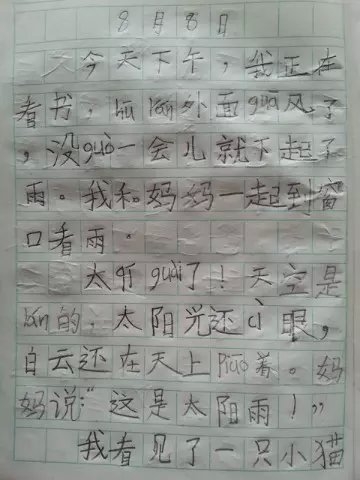 8月8日
今天下午，我正在
看书，hū rán外面guā风了
，没guò一会儿就下起了
雨。我和妈妈一起到窗
口看雨。
太qí guài了！天空是
lán的，太阳光还cì眼，
白云还在天上piāo着。妈
妈说：“这是太阳雨！”
我看见了一只小猫